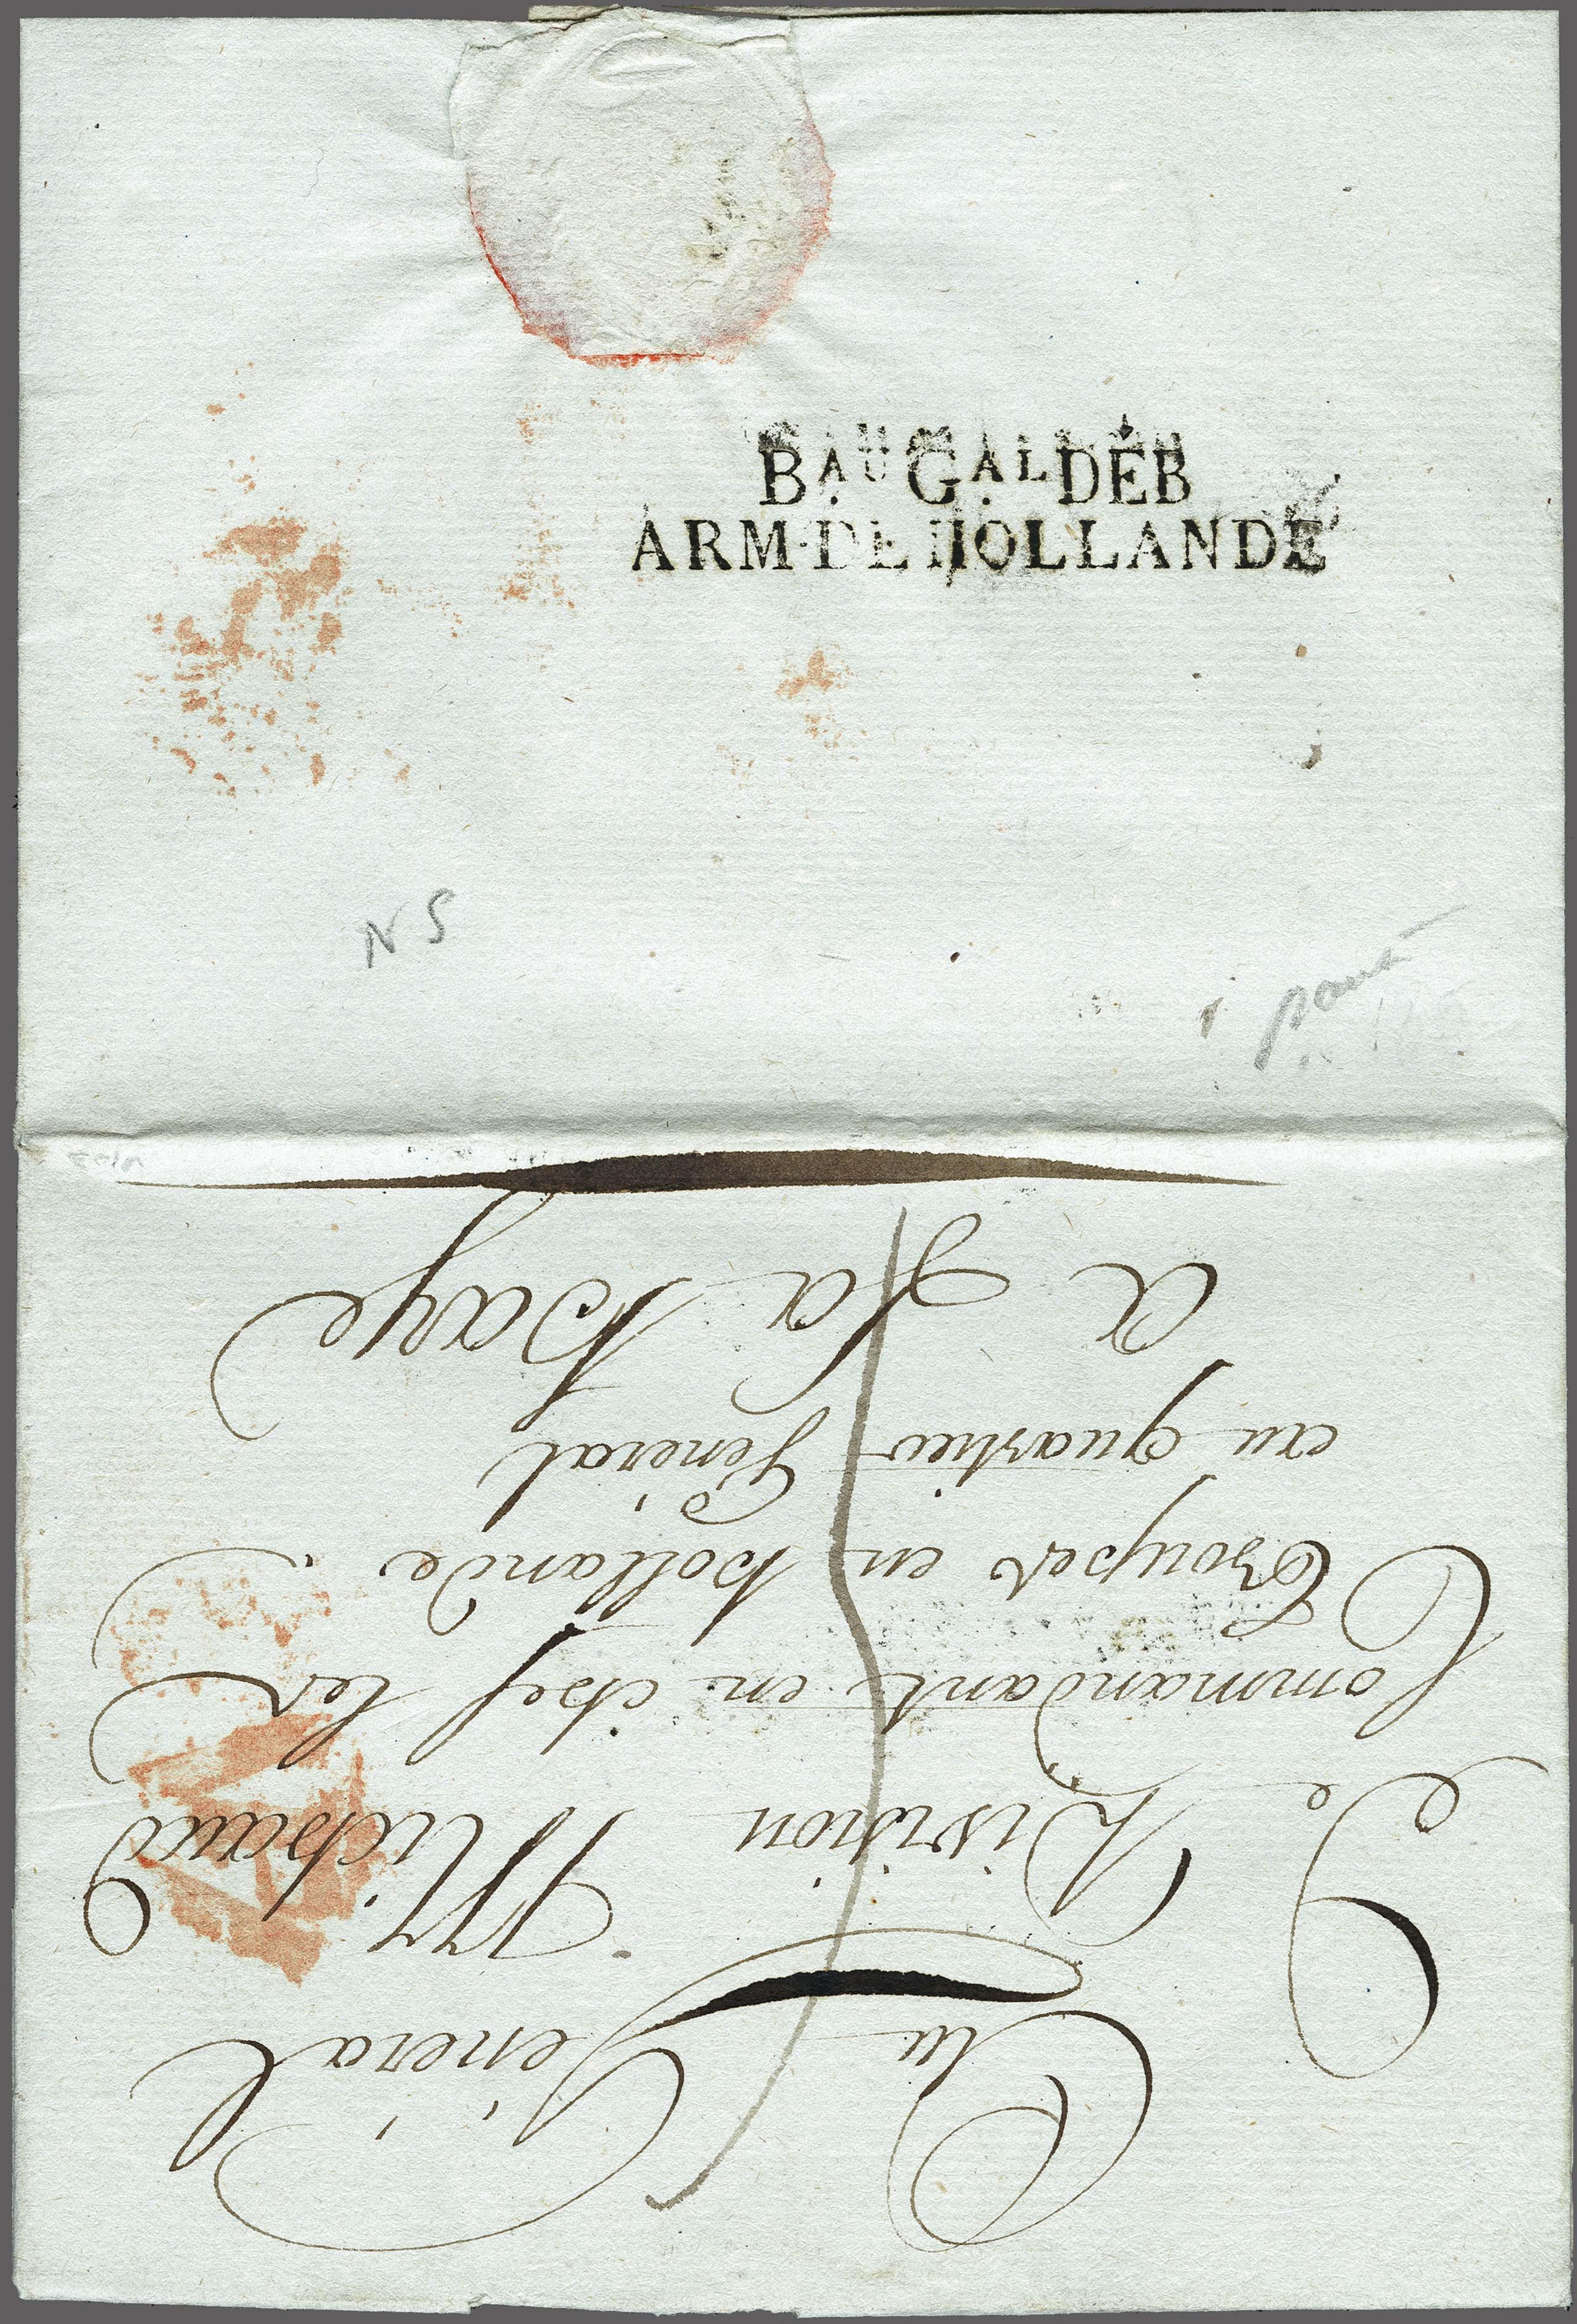 BAU GAL DÉB
ARM. DE HOLLANDE
N S
Au Général
De Division Michaud
Commandant en chef les
Troupes en hollande
au quartier Général
a La haye